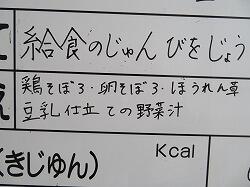 給食のじゅんびをじょう
鶏そぼろ・卵そぼろ・ほうれん草
豆乳仕立ての野菜汁
(きじゅん) Kcal